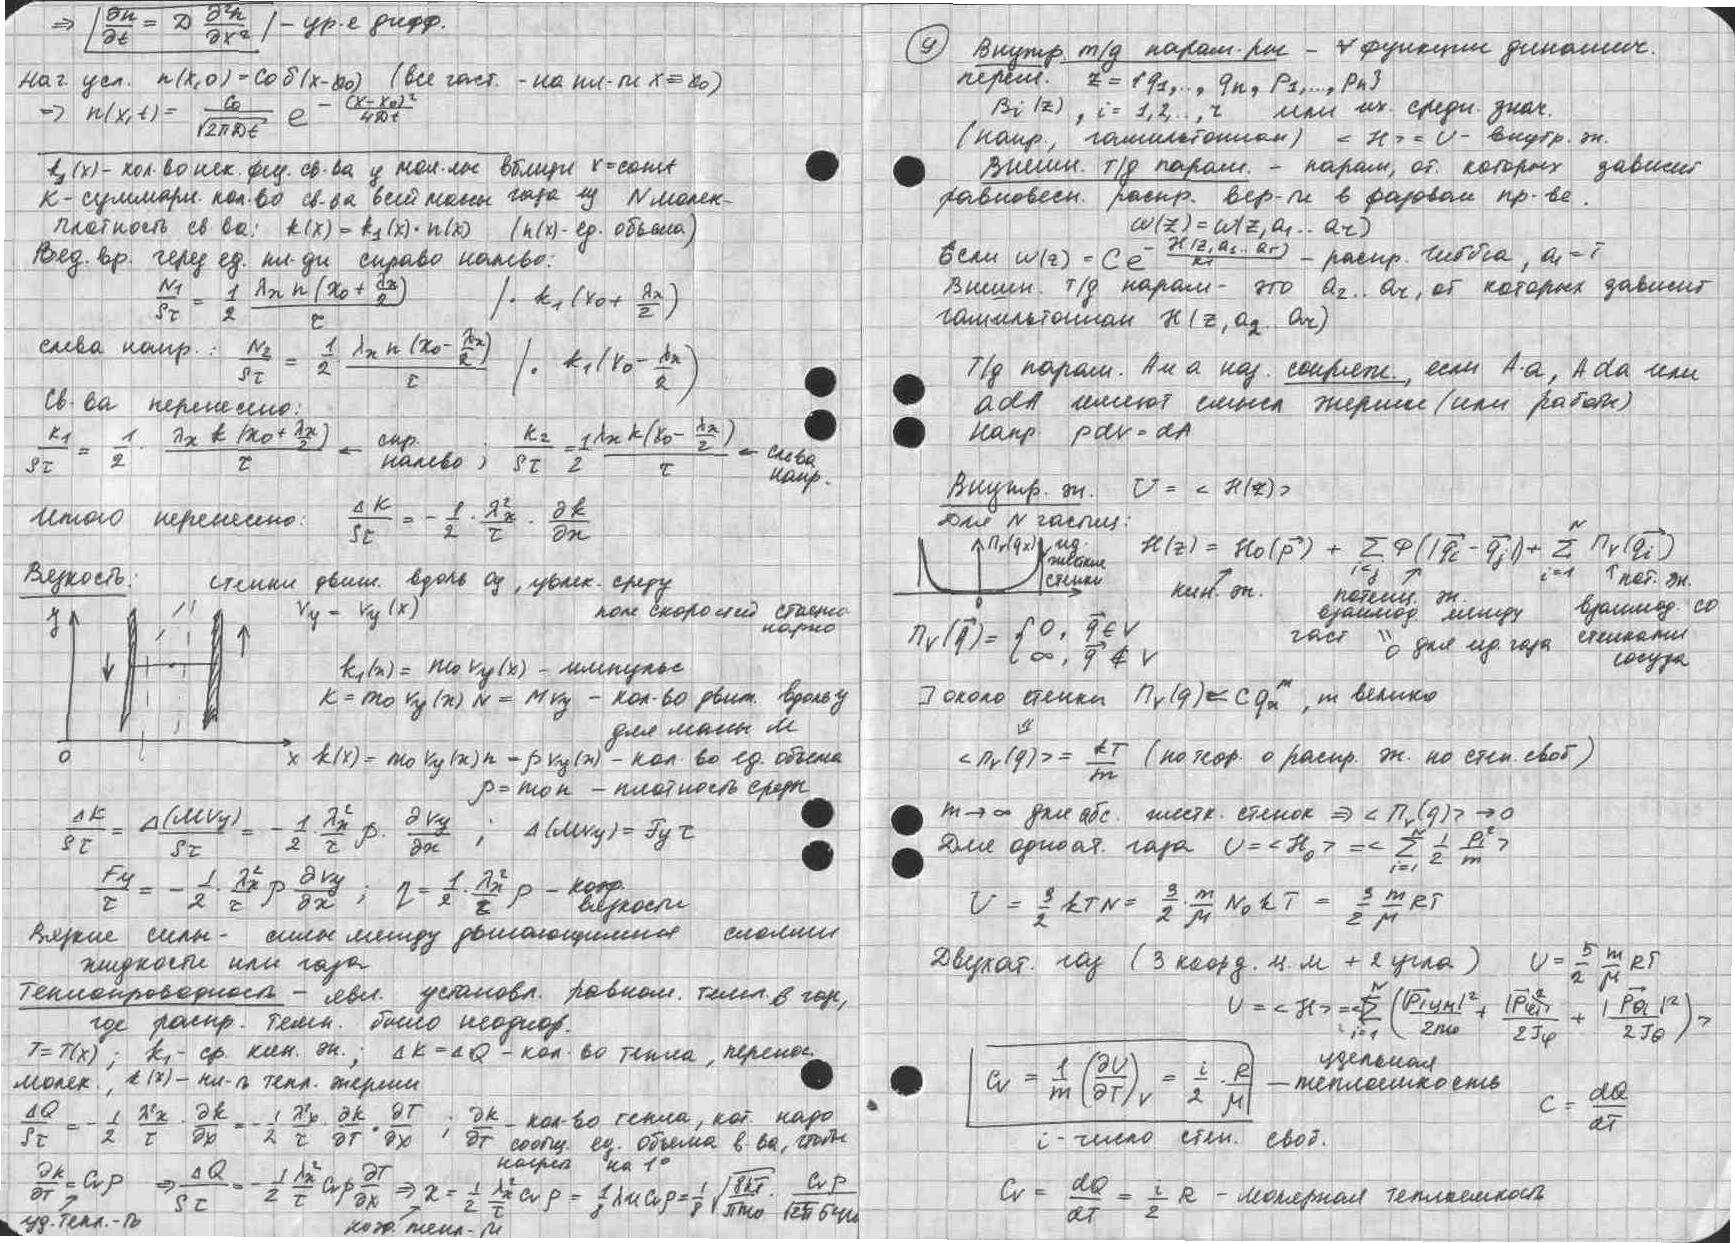 ⇒ ∂n/∂t = D ∂²n/∂x² – ур-е дифф.
нач. усл. n(x,0) = C₀ δ(x-x₀) (все част. - на пл-ти x ≡ x₀)
⇒ n(x,t) = C₀/√(2πDt) e^(-(x-x₀)²/4Dt)
k₁(x) – кол-во нек. физ. св-ва у мол-лы вблизи x = const
K – суммарн. кол-во св-ва всей массы газа из N молек.
плотность св-ва: k(x) = k₁(x)·n(x) (n(x) - ед. объема)
В ед. вр. через ед. пл-ди справа налево:
N₁/Sτ = 1/2 λₓ n(x₀ + λₓ/2)/τ /· k₁(x₀ + λₓ/2)
слева напр.: N₂/Sτ = 1/2 λₓ n(x₀ - λₓ/2)/τ /· k₁(x₀ - λₓ/2)
Св-ва перенесено:
K₁/Sτ = 1/2 · λₓ k(x₀ + λₓ/2)/τ ← спр. налево ; K₂/Sτ = 1/2 λₓ k(x₀ - λₓ/2)/τ ← слева напр.
Итого перенесено: ΔK/Sτ = -1/2 · λₓ²/τ · ∂k/∂x
Вязкость: стенки движ. вдоль Oy, увлек. среду
v_y = v_y(x) поле скоростей стационарно
y
k₁(x) = m₀ v_y(x) – импульс
K = m₀ v_y(x) N = M v_y – кол-во движ. вдоль y
для массы M
0 x k(x) = m₀ v_y(x) n = ρ v_y(x) – кол-во ед. объема
ρ = m₀n – плотность среды
ΔK/Sτ = Δ(Mv_y)/Sτ = -1/2 · λₓ²/τ ρ · ∂v_y/∂x ; Δ(Mv_y) = F_y τ
F_y/τ = -1/2 · λₓ²/τ ρ ∂v_y/∂x ; η = 1/2 · λₓ²/τ ρ – коэф. вязкости
Вязкие силы – силы между движущимися слоями
жидкости или газа
Теплопроводность – явл. установл. равном. темп. в газе,
где распр. темп. было неоднор.
T = T(x) ; k₁ – ср. кин. эн. ; ΔK = ΔQ – кол-во тепла, перенос.
молек., k(x) – пл-ть тепл. энергии
ΔQ/Sτ = -1/2 λₓ²/τ · ∂k/∂x = -1/2 λₓ²/τ · ∂k/∂T · ∂T/∂x ; ∂k/∂T – кол-во тепла, кот. надо
сообщ. ед. объема в-ва, чтобы
нагреть на 1°
∂k/∂T = C_v ρ ⇒ ΔQ/Sτ = -1/2 λₓ²/τ C_v ρ ∂T/∂x ⇒ χ = 1/2 λₓ²/τ C_v ρ = 1/8 λu C_v ρ = 1/8 √(8kT/πm₀) · C_v ρ/
уд. тепл.-ть коэф. тепл-ти
9 Внутр. т/д парам. рис – ∀ функции динамич.
перем. z = {q₁,…, qₙ, p₁,…, pₙ}
Bᵢ(z), i = 1,2,…,r или их средн. знач.
(напр., гамильтониан) <H> = U – внутр. эн.
Внешн. т/д парам. – парам, от которых зависит
равновесн. распр. вер-ти в фазовом пр-ве.
ω(z) = ω(z, a₁…aᵣ)
если ω(z) = C e^(-H(z,a₂…aᵣ)/kT) – распр. Гиббса, a₁ = T
Внешн. т/д парам – это a₂…aᵣ, от которых зависит
гамильтониан H(z, a₂…aᵣ)
Т/д парам. A и a наз. сопряж., если A·a, A da или
a dA имеют смысл энергии (или работы)
Напр. p dV = dA
Внутр. эн. U = <H(z)>
Для N частиц:
Π_v(qₓ) ид. жесткие стенки
0
H(z) = H₀(p⃗) + Σ_{i<j} Φ(|q⃗ᵢ - q⃗ⱼ|) + Σ_{i=1}^N Π_v(q⃗ᵢ)
кин. эн. потенц. эн. взаимод. между част = 0 для ид. газа
пот. эн. взаимод. со стенками сосуда
Π_v(q⃗) = { 0, q⃗ ∈ V
∞, q⃗ ∉ V
] около стенки Π_v(q) = C qₓᵐ, m велико
⇓
<Π_v(q)> = kT/m (по теор. о распр. эн. по степ. своб)
m → ∞ для абс. жестк. стенок ⇒ <Π_v(q)> → 0
Для одноат. газа U = <H₀> = <Σ_{i=1}^N 1/2 pᵢ²/m>
U = 3/2 kTN = 3/2 · m/μ N₀ kT = 3/2 m/μ RT
Двухат. газ (3 коорд. ц.м + 2 угла) U = 5/2 m/μ RT
U = <H> = <Σ_{i=1}^N (|p⃗ᵢ цм|²/2m₀ + |p⃗φᵢ|²/2Jφ + |p⃗θᵢ|²/2Jθ)>
C_v = 1/m (∂U/∂T)_v = i/2 · R/μ – удельная теплоемкость
C = dQ/dT
i – число степ. своб.
C_v = dQ/dT = i/2 R – молярная теплоемкость